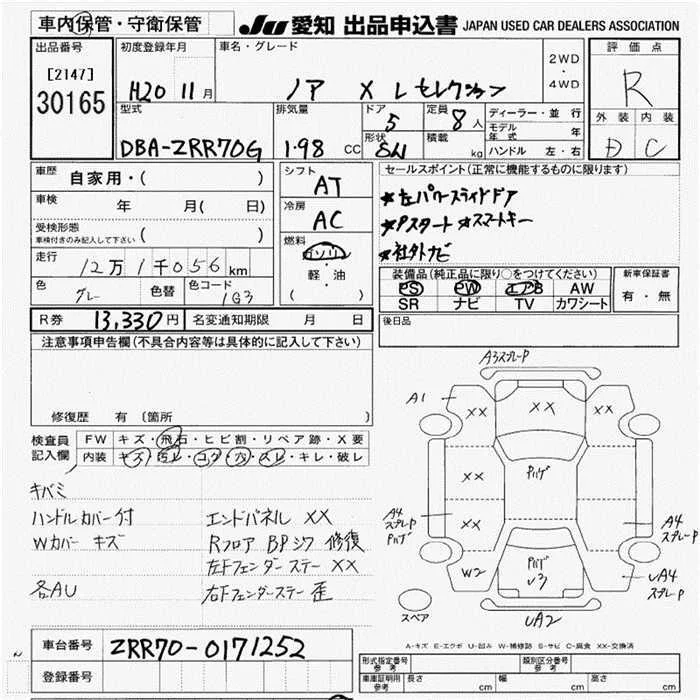 車内保管・守衛保管
JU 愛知 出品申込書 JAPAN USED CAR DEALERS ASSOCIATION
出品番号
[2147]
30165
初度登録年月
H20 11月
車名・グレード
ノア X Lセレクション
2WD
・
4WD
評価点
R
外装 内装
D C
型式
DBA-ZRR70G
排気量
1.98 CC
ドア
5
形状
SW
定員
8人
積載
kg
ディーラー・並行
モデル年式 年
ハンドル 左・右
車歴 自家用・( )
車検 年 月( 日)
受検形態
車検付きのみ記入して下さい ( )
走行 12万1千056km
色 グレー
色替
色コード 1G3
シフト
AT
冷房
AC
燃料
ガソリン
軽・油
( )
セールスポイント(正常に機能するものに限ります)
★左パワースライドドア
★Pスタート ★スマートキー
★社外ナビ
装備品(純正品に限り○をつけてください)
PS PW エアB AW
SR ナビ TV カワシート
新車保証書
有・無
R券 13,330円
名変通知期限 月 日
後日品
注意事項申告欄(不具合内容等は具体的に記入して下さい)
修復歴 有 〔箇所
検査員記入欄
FW キズ・飛石・ヒビ割・リペア跡・X要
内装 キズ・汚レ・コゲ・穴・スレ・キレ・破レ
キバミ
ハンドルカバー付 エンドパネル XX
Wカバー キズ Rフロア BPシワ 修復
左Fフェンダーステー XX
各AU 右Fフェンダーステー 歪
A3スプレーP
A1
XX XX XX
XX
Pハゲ
A4
スプレーP
Pハゲ
XX
A4
スプレーP
W2
Pハゲ
U3
UA4
スプレーP
スペア
UA2
A-キズ E-エクボ U-凹み W-補修跡 S-サビ C-腐食 XX-交換済
車台番号 ZRR70-0171252
登録番号
形式指定番号 参考
類別区分番号 参考
車庫証明用 参考
長さ cm 幅 cm 高さ cm